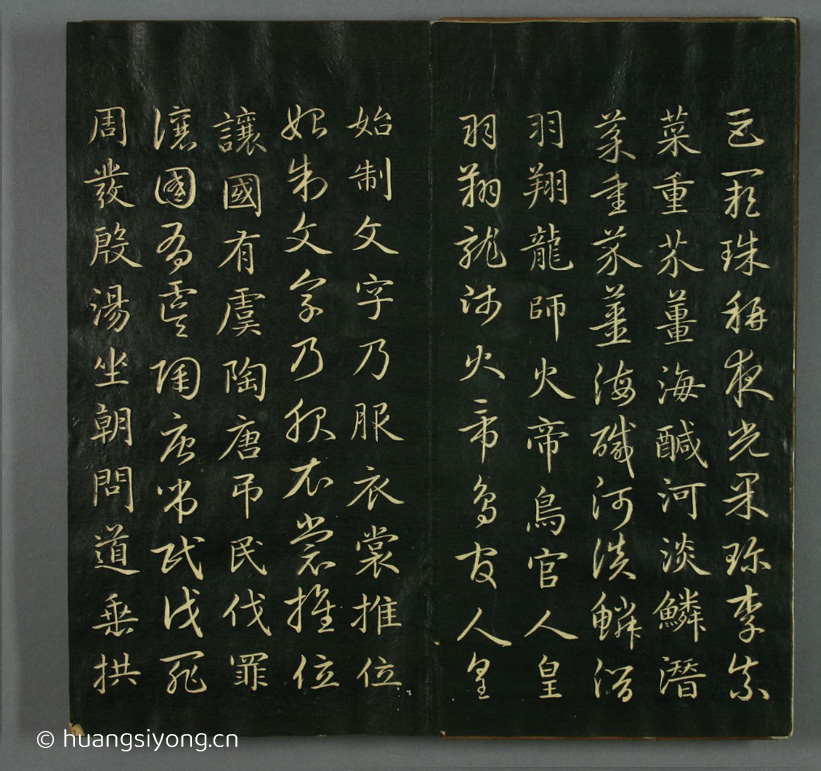 巨闕珠稱夜光果珍李柰
菜重芥薑海醎河淡鱗潛
菜重芥薑海醎河淡鱗潛
羽翔龍師火帝鳥官人皇
羽翔龍師火帝鳥官人皇
始制文字乃服衣裳推位
始制文字乃服衣裳推位
讓國有虞陶唐吊民伐罪
讓國有虞陶唐吊民伐罪
周發殷湯坐朝問道垂拱
© huangsiyong.cn